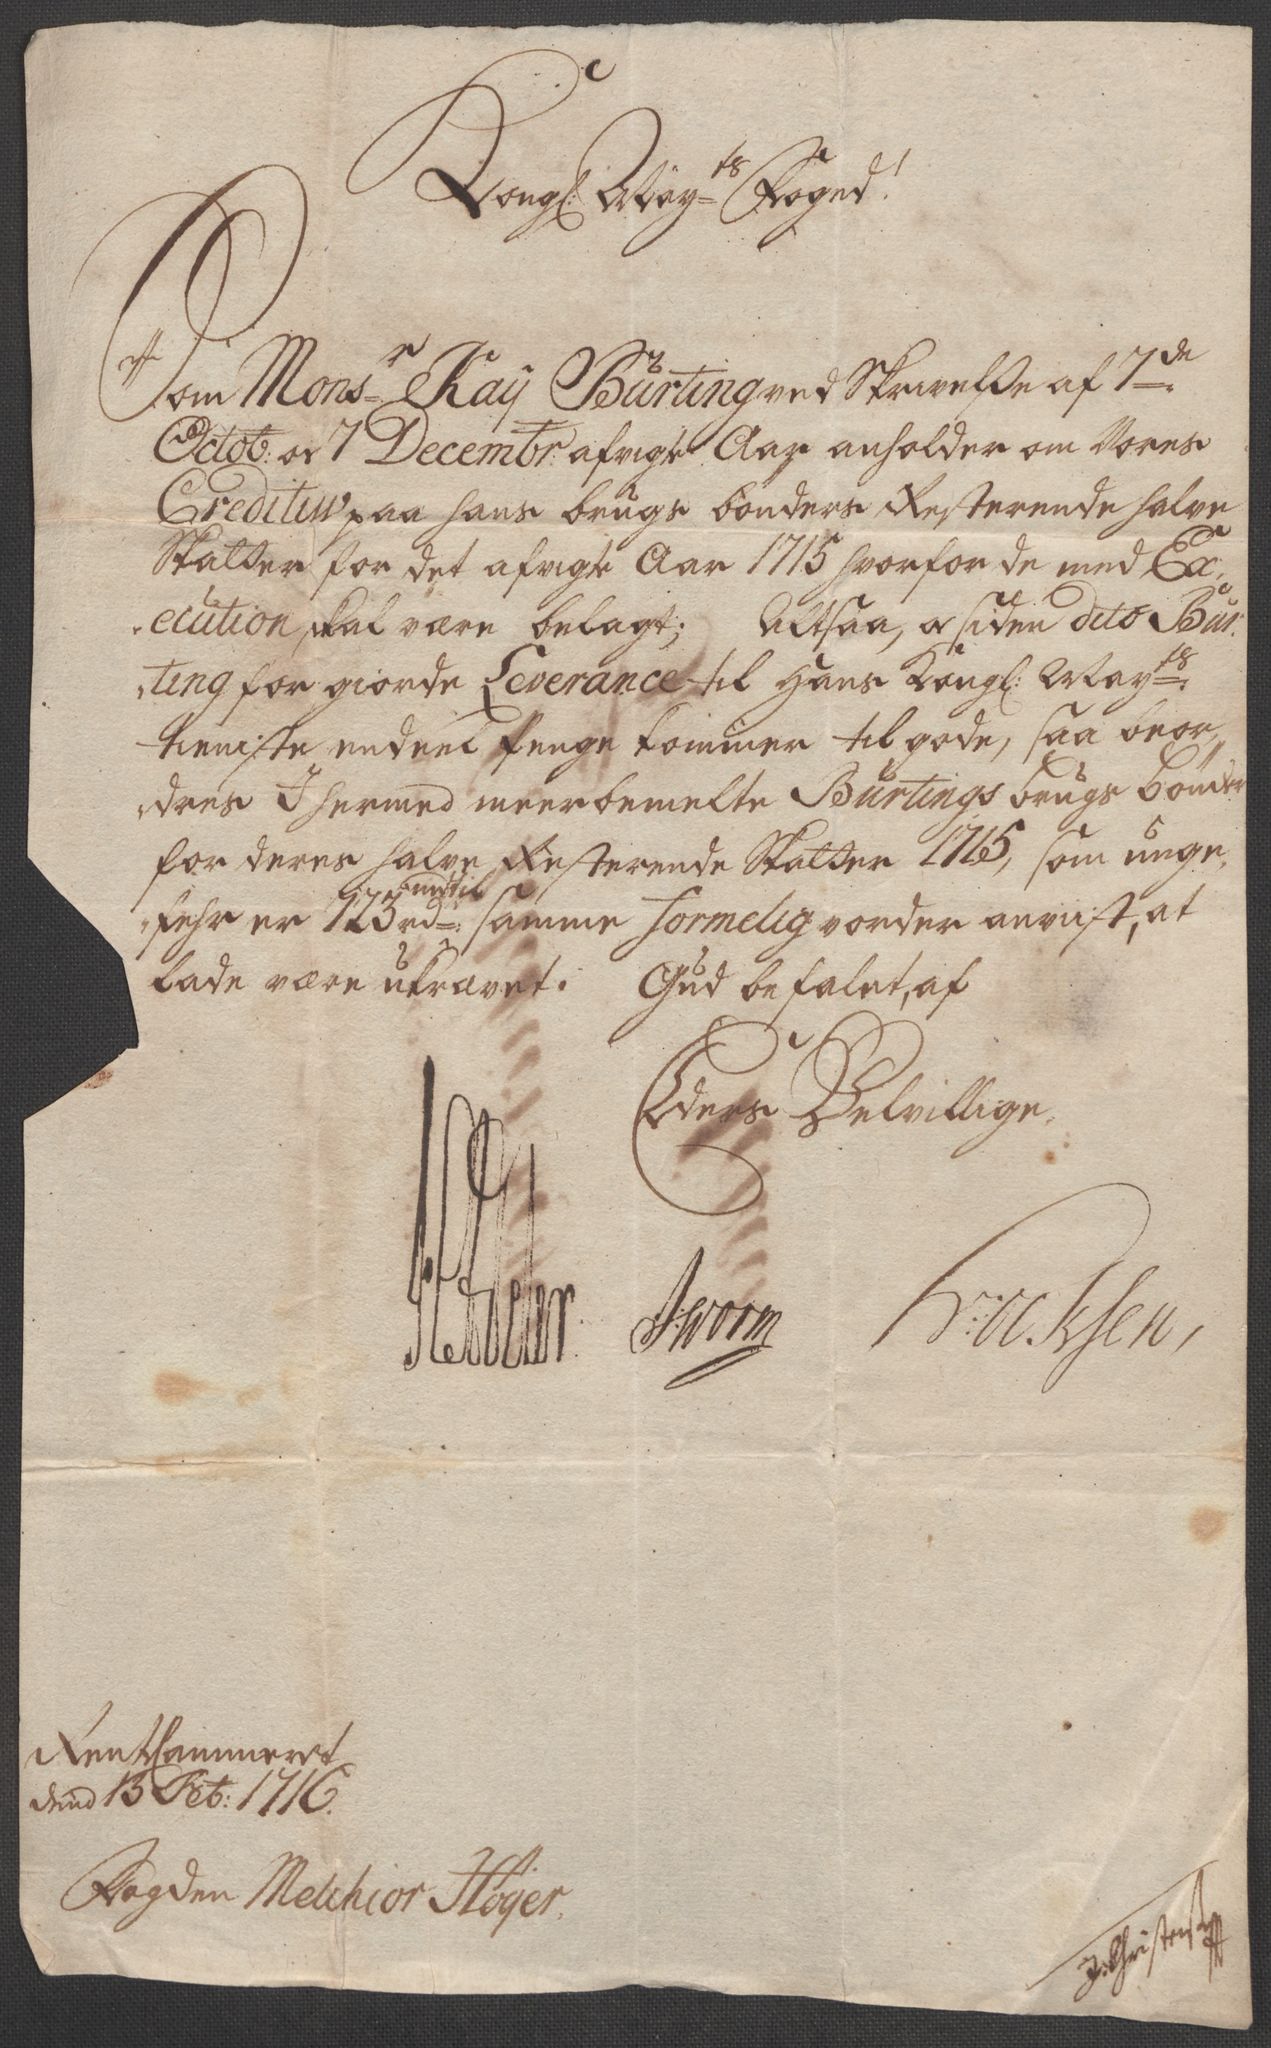 Kongl: May=ts Foged!
Som Mons=r Kay Bürting ved Skrivelse af 7=de
Octob: oc 7 Decembr: afvigte Aar anholder om Vores
Creditiv paa hans brugs bønders Resterende halve
Skatter for det afvigte Aar 1715 hvorfor de med Ex,
ecution skal være belagt; Altsaa, oc siden dito Bür,
ting for giorde Leverance til Hans Kongl: May=ts
tieniste endeel Penge kommer til gode, saa beor,
dres I hermed meerbemelte Bürtings brugs bønder
for deres halve Resterende Skatter 1715, som unge,
fehr er 123 rd=r: indtil samme formelig vorder anviist, at
lade være ukrævet. Gud befalet, af
Eders Velvillige
J: Worm
Rentekammeret
dend 13 Feb: 1716.
Fogden Melchior Høÿer.
J: Christensen